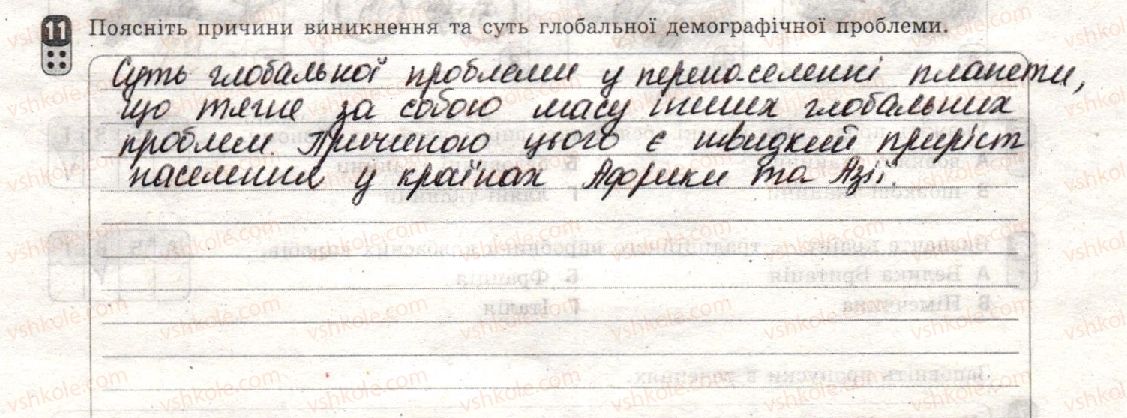 11 Поясніть причини виникнення та суть глобальної демографічної проблеми.
Суть глобальної проблеми у перенаселенні планети,
що тягне за собою масу інших глобальних
проблем. Причиною цього є швидкий приріст
населення у країнах Африки та Азії.